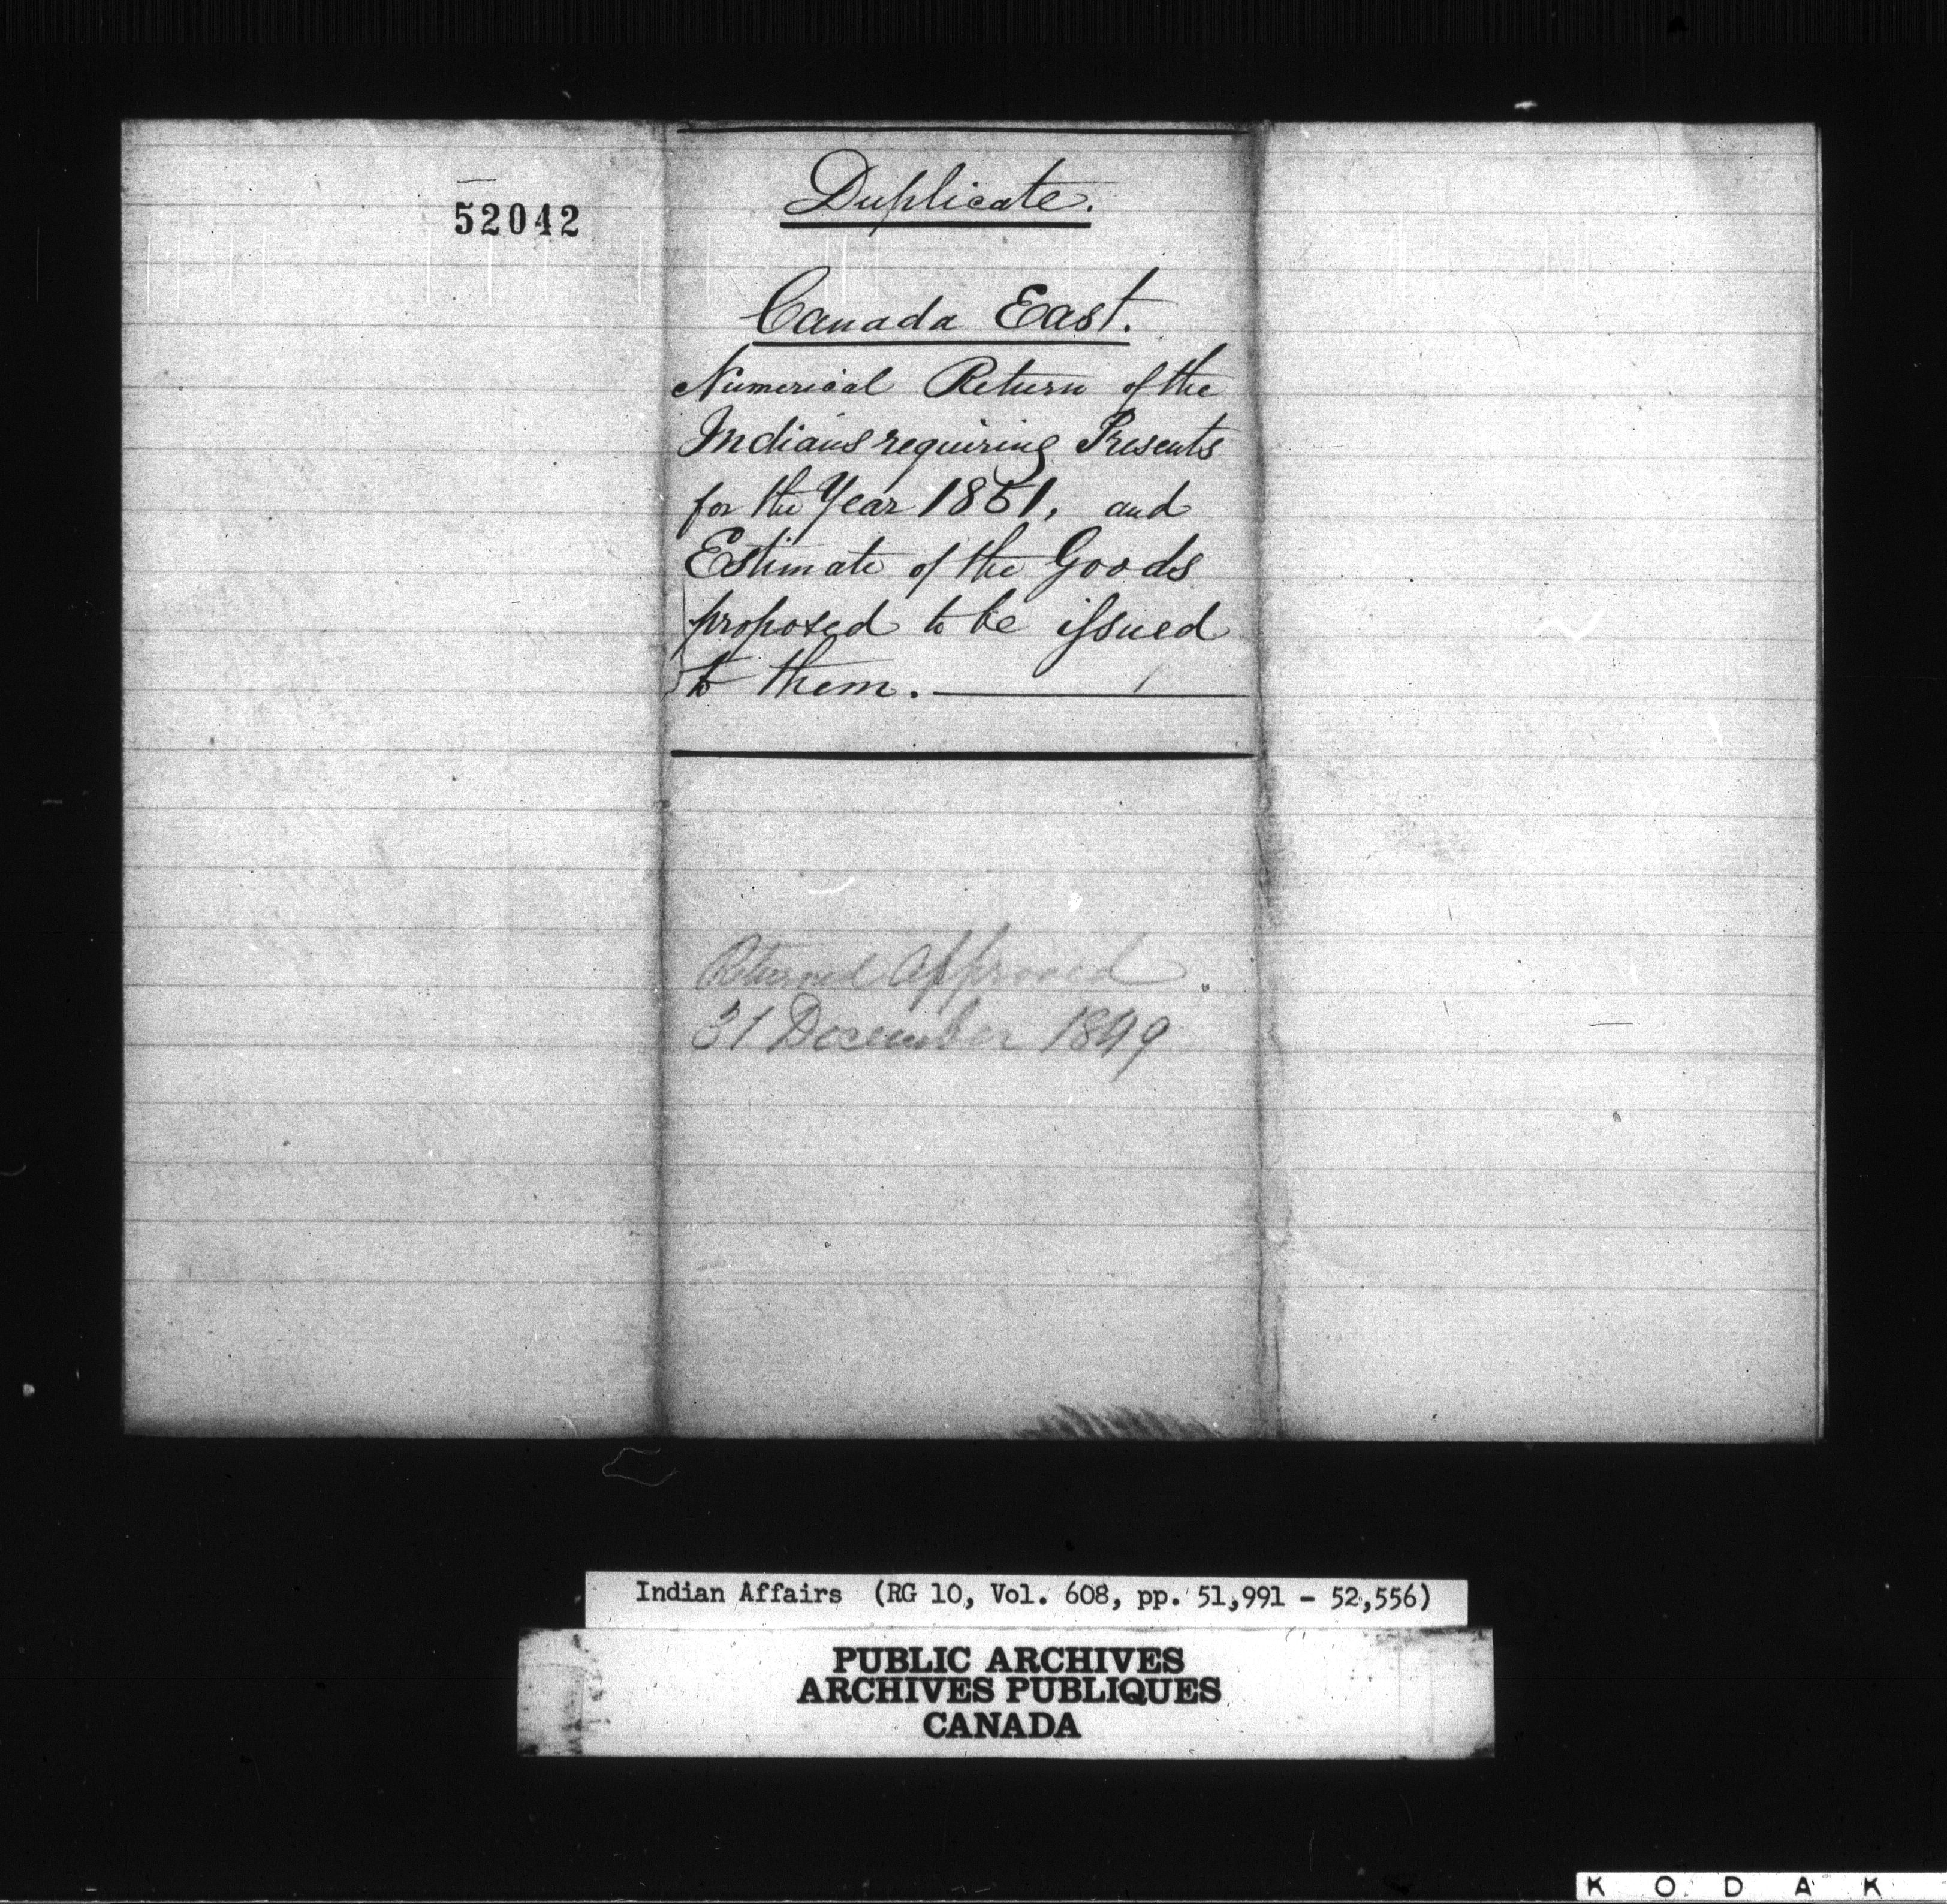 52042
Duplicate.
Canada East.
Numerical Return of the
Indians requiring Presents
for the Year 1851, and
Estimate of the Goods
proposed to be issued
to them.
Returned Approved
31 December 1849
Indian Affairs (RG 10, Vol. 608, pp. 51,991 - 52,556)
PUBLIC ARCHIVES
ARCHIVES PUBLIQUES
CANADA
KODAK